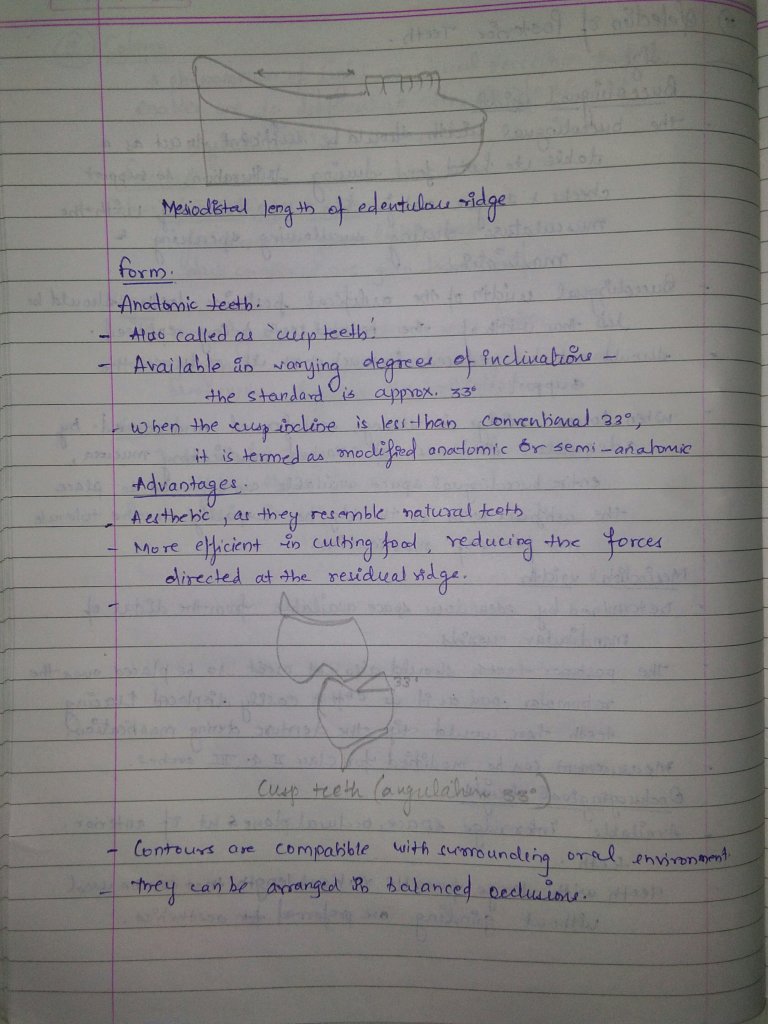 Mesiodistal length of edentulous ridge
Form.
Anatomic teeth.
- Also called as 'cusp teeth'.
- Available in varying degrees of inclinations -
the standard is approx. 33°
- When the cusp incline is less than conventional 33°,
it is termed as modified anatomic or semi-anatomic
Advantages.
- Aesthetic, as they resemble natural teeth
- More efficient in cutting food, reducing the forces
directed at the residual ridge.
-
33°
Cusp teeth (angulation 33°)
- Contours are compatible with surrounding oral environment.
- They can be arranged in balanced occlusion.